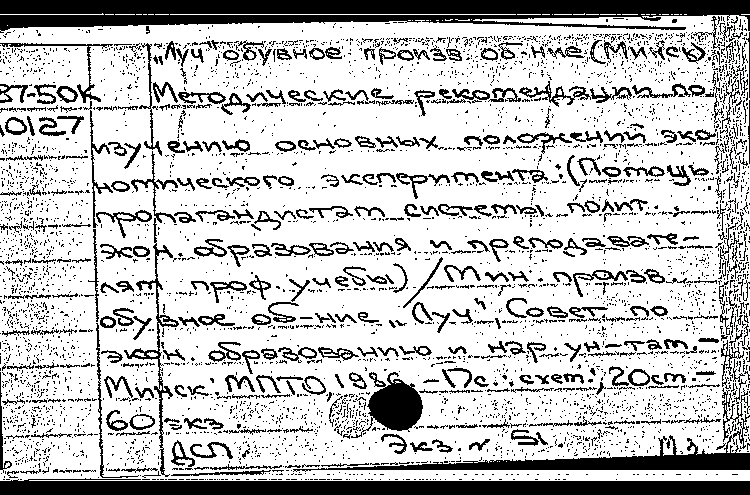 „Луч", обувное произв. об-ние (Минск).
87-50К Методические рекомендации по
10127
изучению основных положений эко-
номического эксперимента: (Помощь
пропагандистам системы полит. ,
экон. образования и преподавате-
лям проф. учебы) / Мин. произв.
обувное об-ние „Луч", Совет по
экон. образованию и нар. ун-там. –
Минск: МПТО, 1986. – 17с.: схем.; 20см. –
60 экз.
ДСП. Экз. № 51.